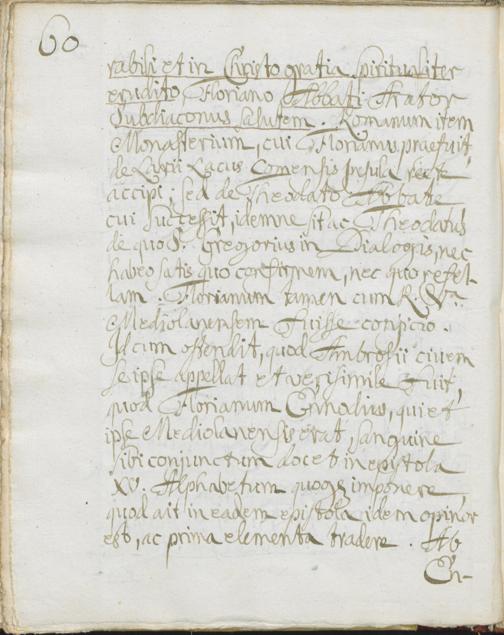 60
rabili et in Christo gratia spiritualiter
erudito, Floriano Abbati Arator
Subdiaconus salutem. Romanum item
Monasterium, cui Florianus praefuit,
de Larii Lacus Comensis Insula recte
accipi; sed de Theodato Abbate
cui successit, idemne sit ac Theodatus
de quo S. Gregorius in Dialogis, nec
habeo satis quo confirmem, nec quo refel-
lam. Florianum tamen cum R. Va.
Mediolanensem fuisse conspicio.
Id cum ostendit, quod Ambrosii civem
se ipse appellat et verisimile fuit,
quod Florianum Ennodius, qui et
ipse Mediolanensis erat, sanguine
sibi conjunctum docet in epistola
XV. Alphabetum quoqz imponere
quod ait in eadem epistola idem opinor
est, ac prima elementa tradere. Ab
En-